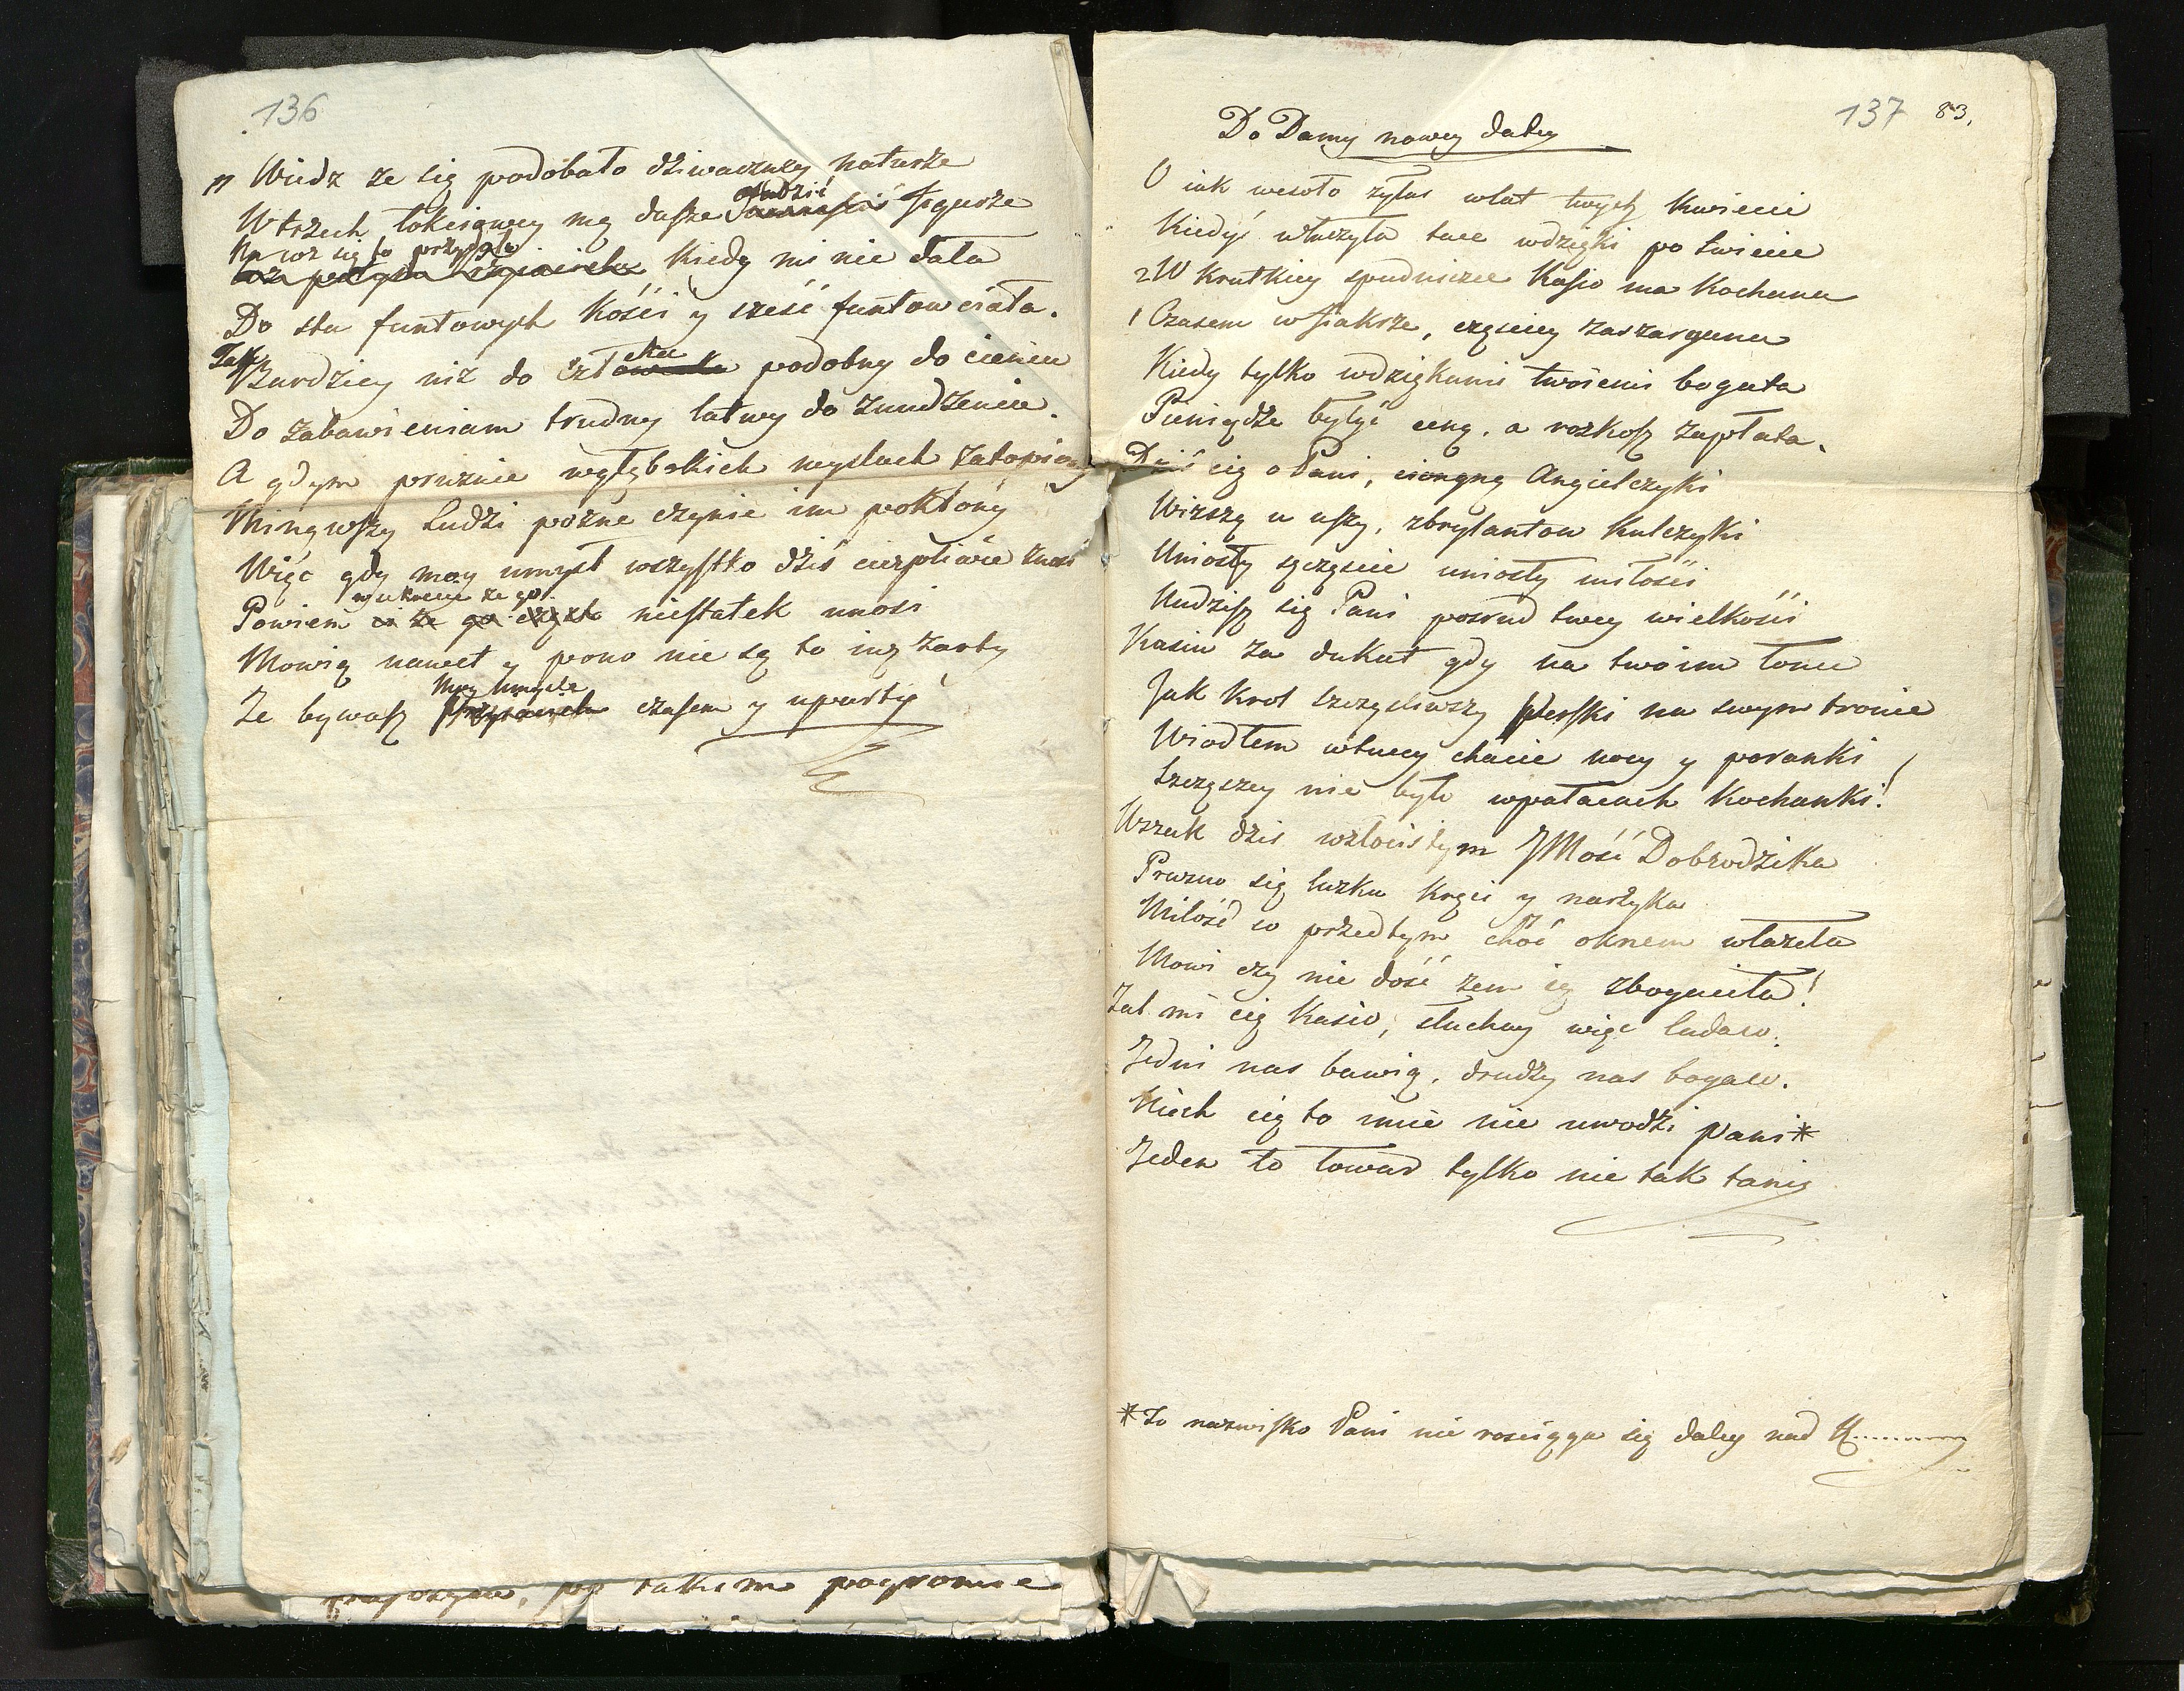 136
Widz ze się podobało dziwaczney naturze
W trzech łokciowey mą duszę osadzić figurze
Na coz się to przydało Kiedy mi nie dała
Do stu funtowych Kości y sześć funtow ciała.
Tak Bardziey niz do człeka podobny do cienia
Do zabawieniam trudny łatwy do znudzenia.
A gdym prożnie wgłębokich myslach zatopiony
Minąwszy Ludzi pozne czynie im pokłony
Więc gdy moy umysł wszystko dziś cierpliwie znosi
Powiem wukrocie ze go niestatek unosi
Mowią nawet y pono nie są to iuż zarty
Ze bywasz Moy Umysle czasem y uparty
137 83.
Do Damy nowey daty
O iak wesoło zyłas wlat twych Kwiecie
Kiedyś włuczyła twe wdzięki po świecie
2 W Krutkiey spudnicze Kasio ma Kochana
1 Czasem w fiakrze, częściey zaszargana
Kiedy tylko wdziękami twoiemi bogata
Pieniądze byłyć ceną, a rozkosz zapłata.
Dziś cię o Pani, ciągną Angielczyki
Wiszą u uszy, zbrylantow Kulczyki
Uniosły szczęscie uniosły miłości
Nudzisz się Pani posrud twey wielkości
Kasiu za dukat gdy na twoim łonie
Jak Krol szczęsliwszy Perski na swym tronie
Wiodłem wtwey chacie nocy y poranki
Szczęszey nie było wpałacach Kochanki!
Wszak dzis wzłocistym JMość Dobrodzika
Prozno się łuzku Kręci y narzyka
Miłość co przedtym choć oknem właziła
Mowi czy nie dość zem ią zbogaciła!
Zal mi cię Kasiu, słuchay więc ladaco.
Jedni nas bawią, drudzy nas bogacą.
Niech cię to imie nie uwodzi Pani*
Jeden to towar tylko nie tak tani
* To nazwisko Pani nie rosciąga się daley nad K........